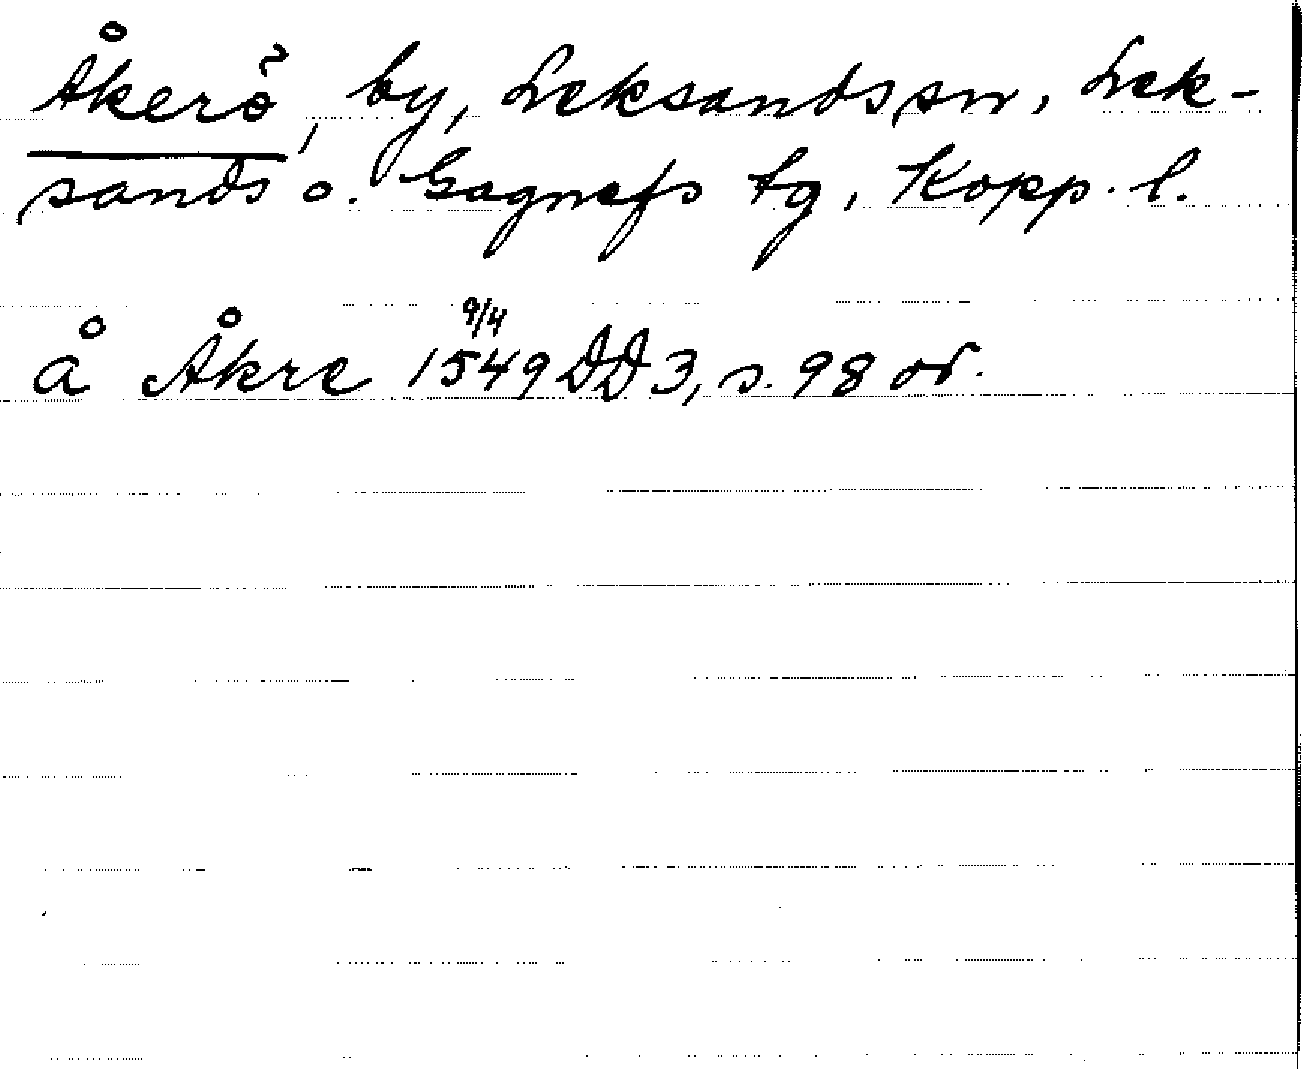 Åkerö, by, Leksands sn, Lek-
sands o. Gagnefs tg, Kopp. l.
å Åkre 1549 9/4 DD 3, s. 98 or.